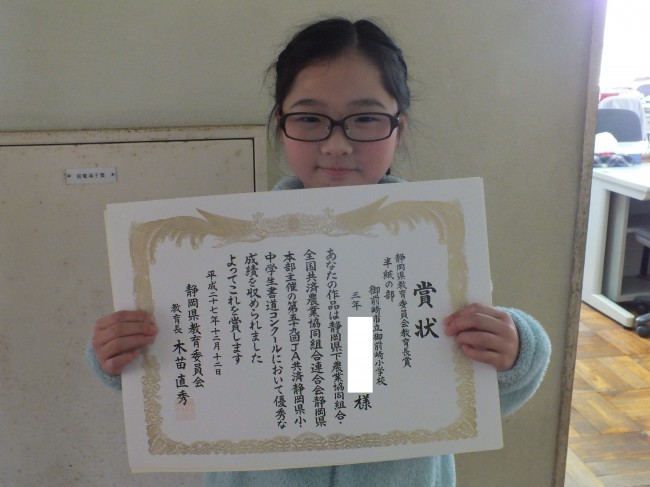 賞状
静岡県教育委員会教育長賞
半紙の部
御前崎市立御前崎小学校
三年
様
あなたの作品は静岡県下農業協同組合・
全国共済農業協同組合連合会静岡県
本部主催の第五十九回JA共済静岡県小・
中学生書道コンクールにおいて優秀な
成績を収められました
よってこれを賞します
平成二十七年十二月十二日
静岡県教育委員会
教育長 木苗直秀